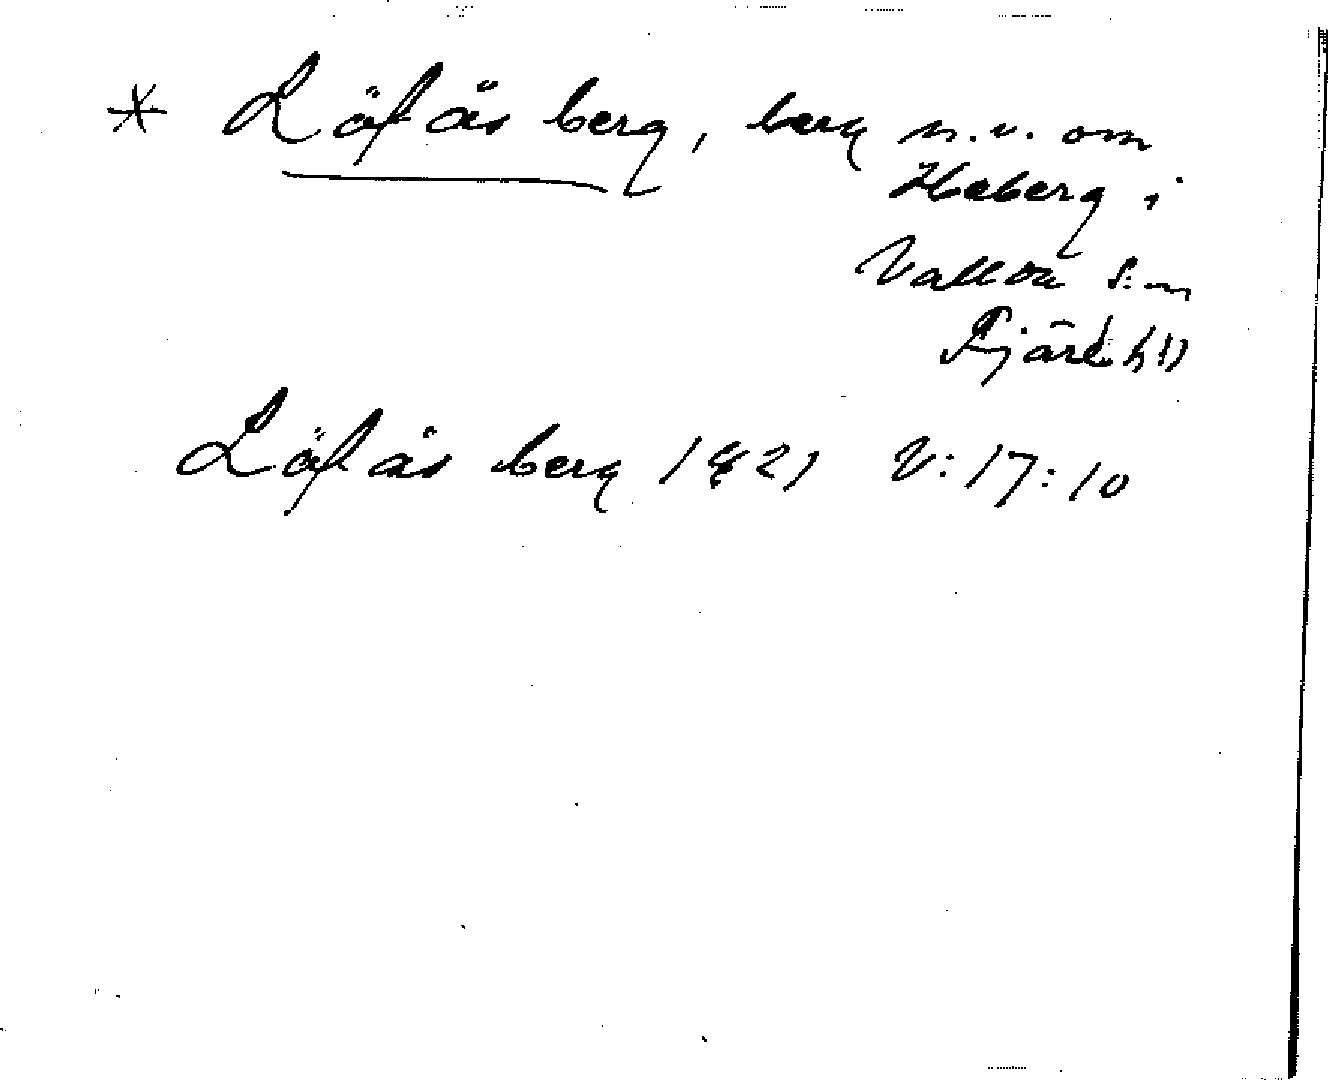 * Löfås berg, berg n.v. om
Heberg i
Vallda s:n
Fjäre hd
Löfås berg 1821 V:17:10